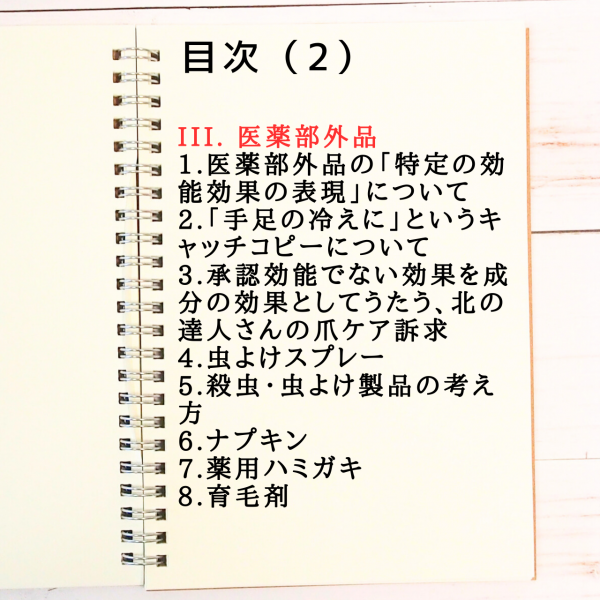 目次（2）
III. 医薬部外品
1.医薬部外品の「特定の効
能効果の表現」について
2.「手足の冷えに」というキ
ャッチコピーについて
3.承認効能でない効果を成
分の効果としてうたう、北の
達人さんの爪ケア訴求
4.虫よけスプレー
5.殺虫・虫よけ製品の考え
方
6.ナプキン
7.薬用ハミガキ
8.育毛剤